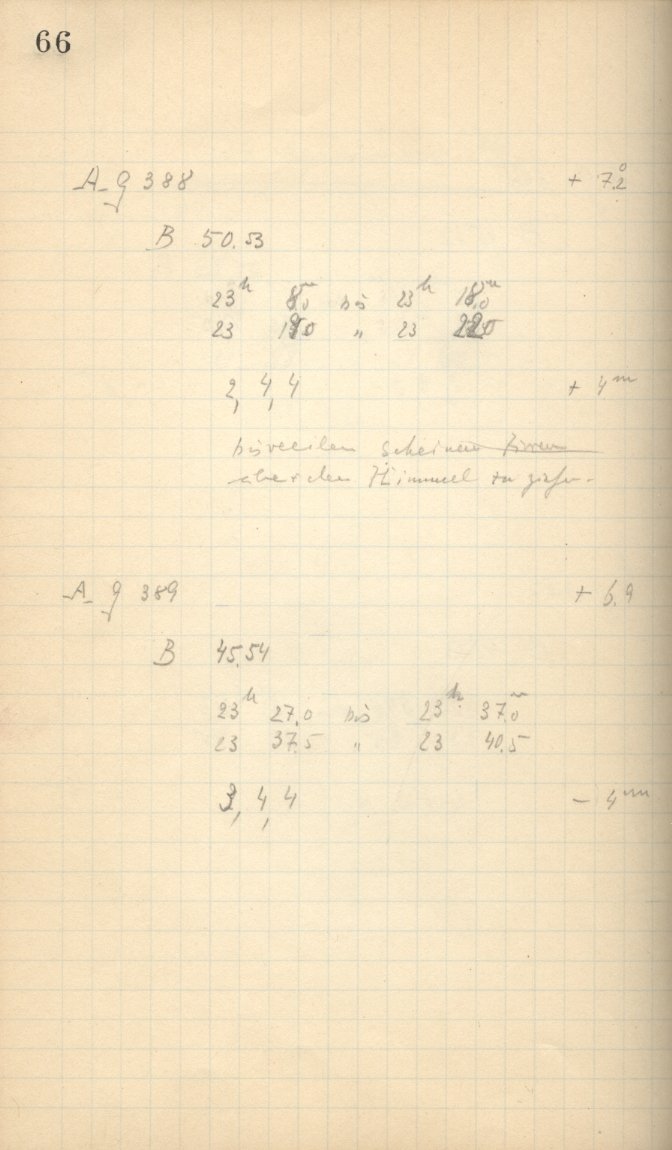 66
A g 388 + 7°.2
B 50.53
23h 8m.0 bis 23h 18m.0
23 19.0 " 23 22.0
2, 4, 4 + 4m
bisweilen scheinen
über den Himmel zu ziehen.
A g 389 + 6.9
B 45.54
23h 27.0 bis 23h 37m.0
23 37.5 " 23 40.5
3, 4, 4 – 4m